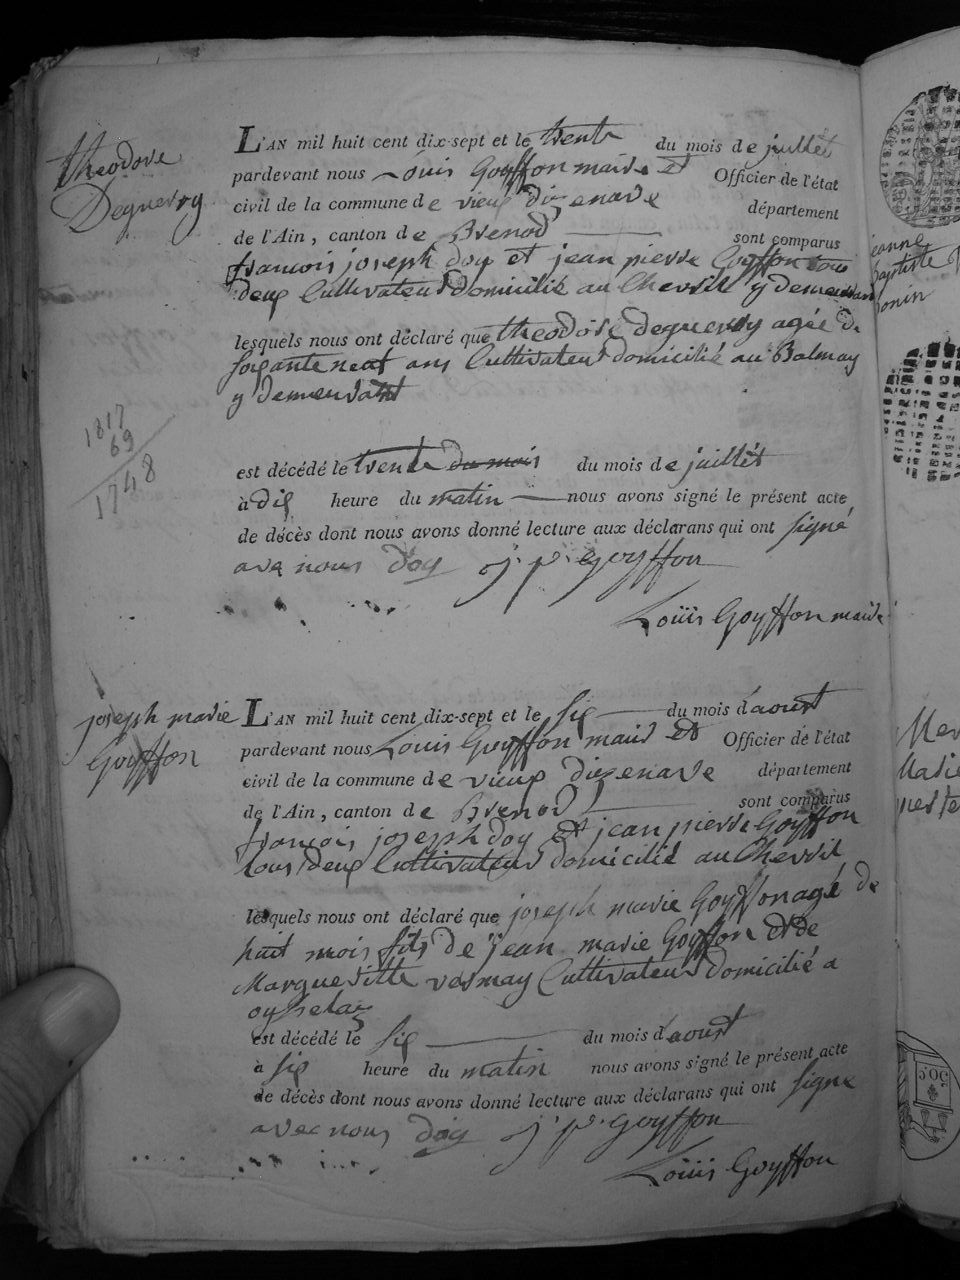 theodore
Deguerry
L'AN mil huit cent dix-sept et le trente du mois de juillet
pardevant nous Louis Goyffon maire et Officier de l'état
civil de la commune de vieux dizenave département
de l'Ain, canton de Brenod sont comparus
francois joseph doy et jean pierre Goyffon tous
deux Cultivateur domicilié au Chevril y demeurant
lesquels nous ont déclaré que theodore deguerry agée de
soixante neuf ans Cultivateur domicilié au Balmay
y demeurant
1817
69
1748
est décédé le trente du mois du mois de juillet
à dix heure du matin nous avons signé le présent acte
de décès dont nous avons donné lecture aux déclarans qui ont signé
avec nous doy j p Goyffon
Louis Goyffon maire
joseph marie
Goyffon
L'AN mil huit cent dix-sept et le six du mois d'aoust
pardevant nous Louis Goyffon maire et Officier de l'état
civil de la commune de vieux dizenave département
de l'Ain, canton de Brenod sont comparus
francois joseph doy et jean pierre Goyffon
tous deux Cultivateur domicilié au Chevril
lesquels nous ont déclaré que joseph marie Goyffon agé de
huit mois fils de jean marie Goyffon et de
Margueritte vesmay Cultivateur domicilié a
oyselaz
est décédé le six du mois d'aoust
à six heure du matin nous avons signé le présent acte
de décès dont nous avons donné lecture aux déclarans qui ont signé
avec nous doy j p Goyffon
Louis Goyffon
jeanne
baptiste